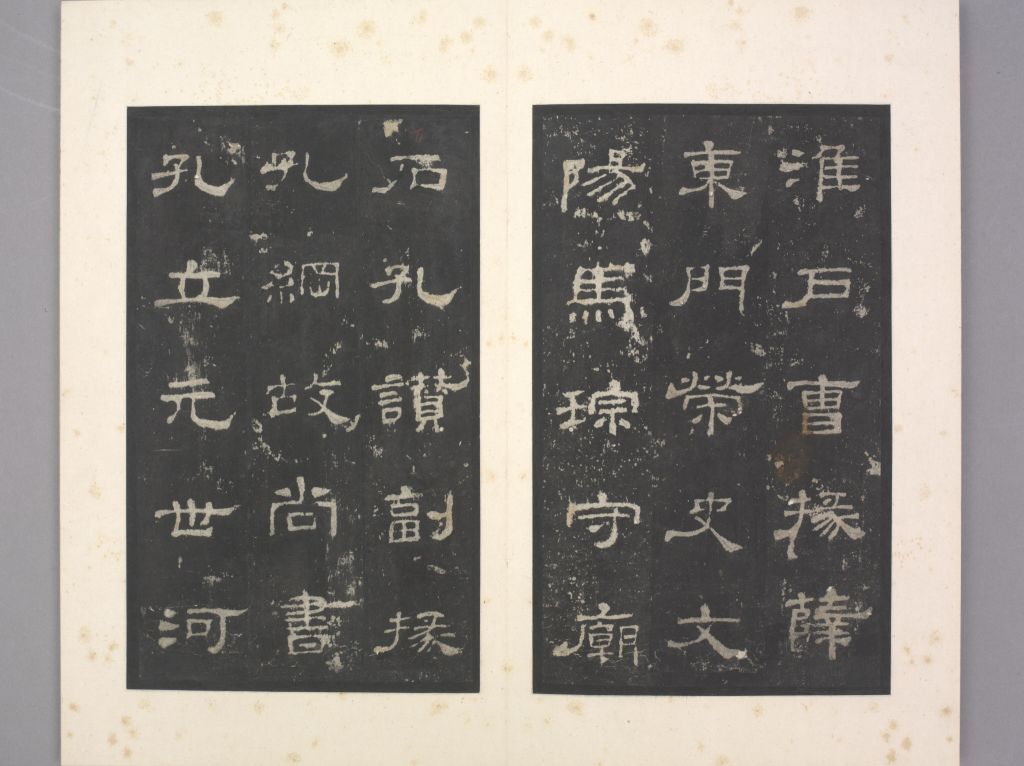 淮戶曹掾薛
東門榮史文
陽馬琮守廟
石孔讃副掾
孔綱故尚書
孔立元世河